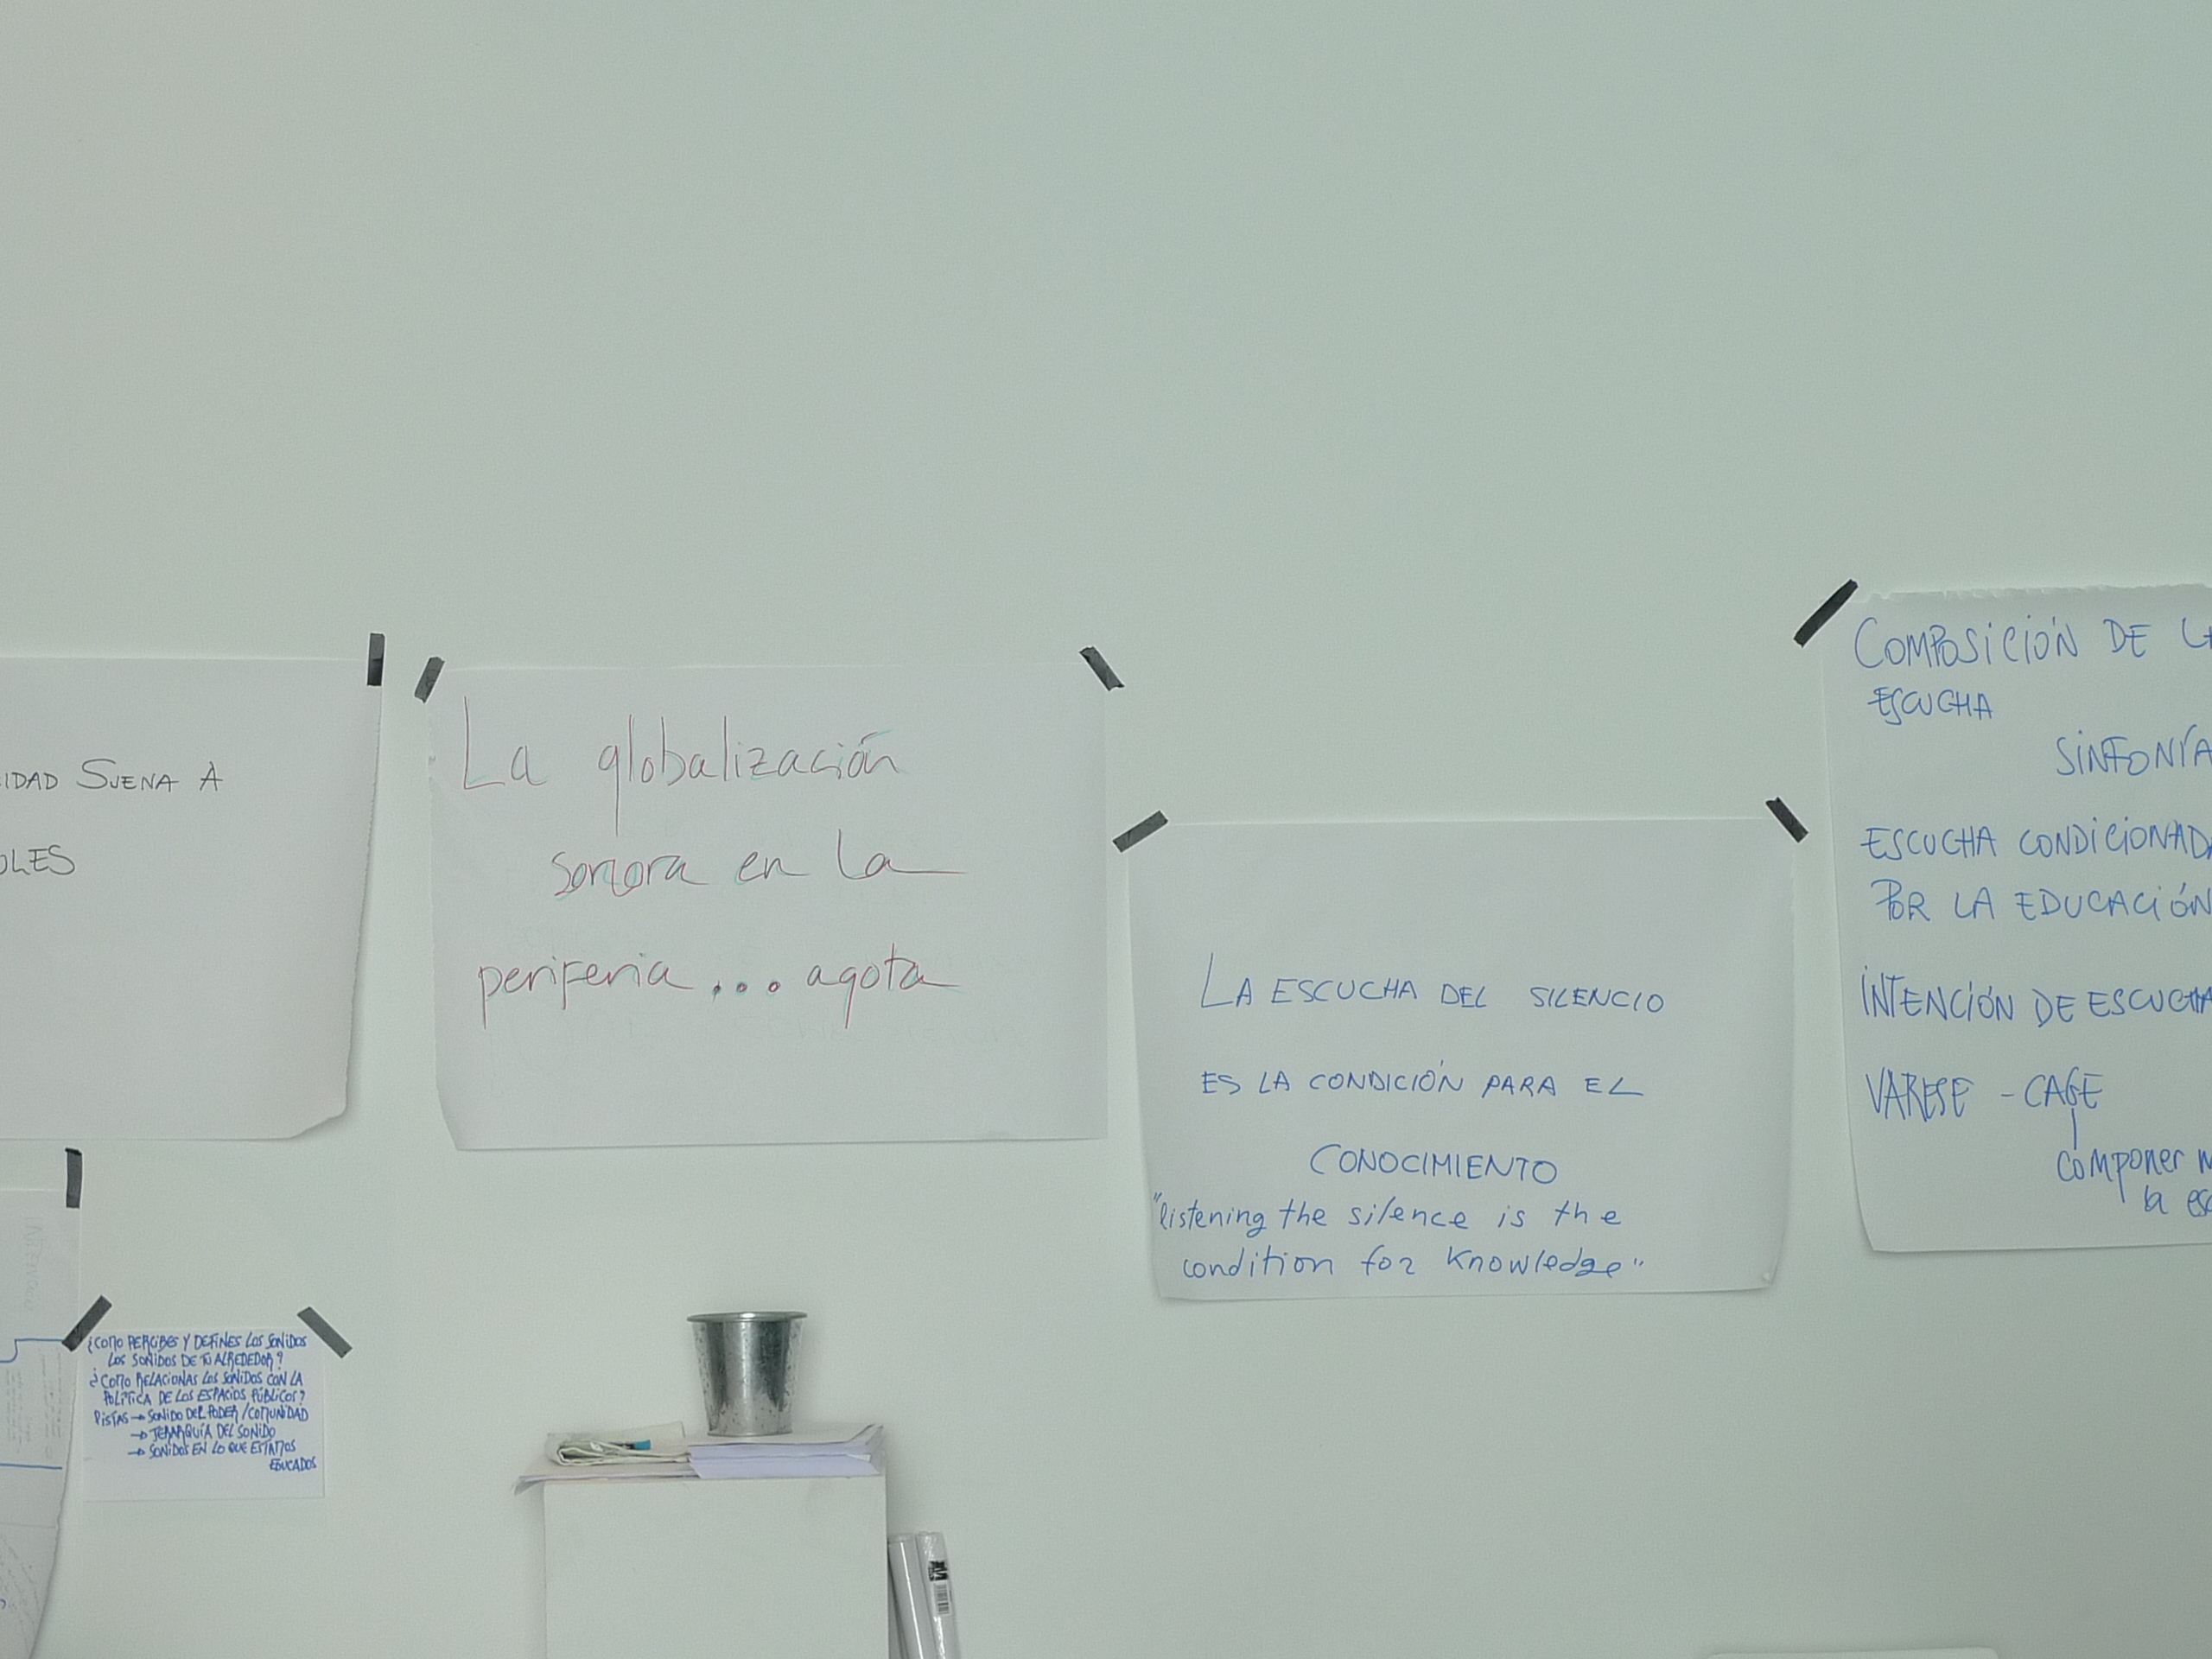 SUENA A
La globalización
sonora en la
periferia... agota
LA ESCUCHA DEL SILENCIO
ES LA CONDICIÓN PARA EL
CONOCIMIENTO
"listening the silence is the
condition for Knowledge"
COMPOSICIÓN DE
ESCUCHA
SINFONÍA
ESCUCHA CONDICIONADA
POR LA EDUCACIÓN
INTENCIÓN DE ESCUCHA
VARESE - CAGE
componer
la
¿COMO PERCIBES Y DEFINES LOS SONIDOS
LOS SONIDOS DE TU ALREDEDOR?
¿COMO RELACIONAS LOS SONIDOS CON LA
POLÍTICA DE LOS ESPACIOS PÚBLICOS?
PISTAS → SONIDO DEL PODER/COMUNIDAD
→ JERARQUÍA DEL SONIDO
→ SONIDOS EN LO QUE ESTAMOS
EDUCADOS